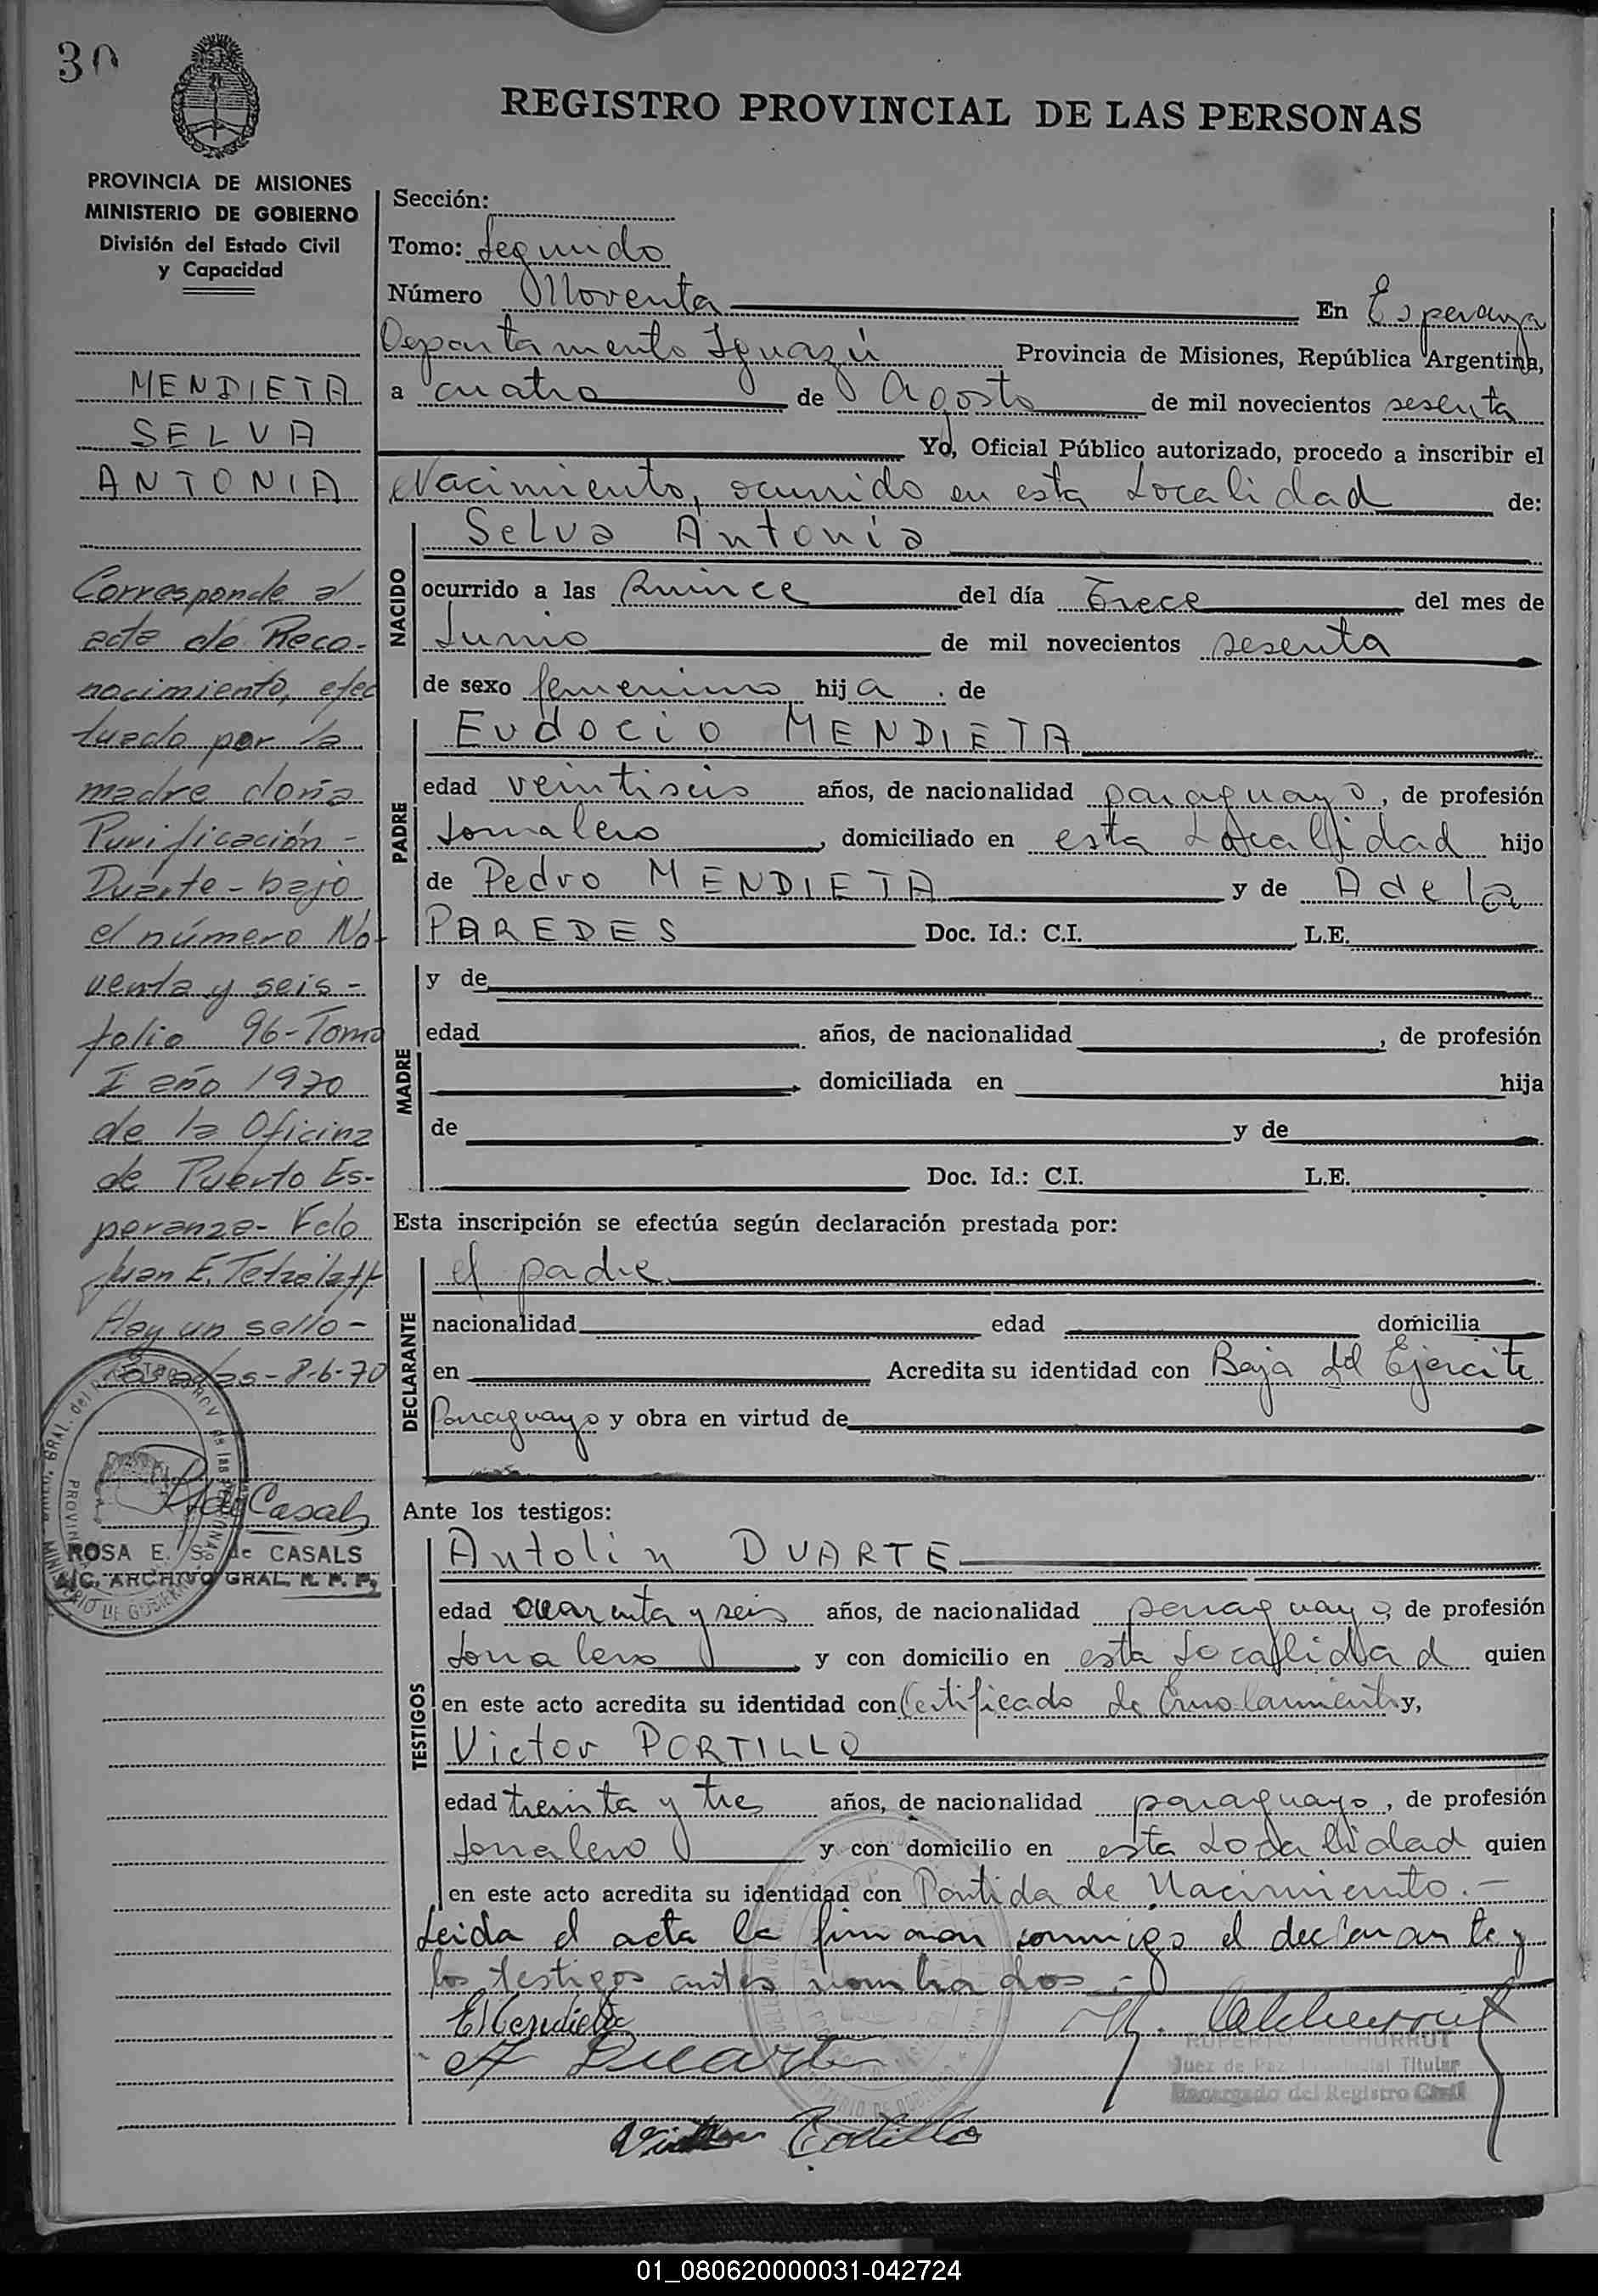 30
REGISTRO PROVINCIAL DE LAS PERSONAS
PROVINCIA DE MISIONES
MINISTERIO DE GOBIERNO
División del Estado Civil
y Capacidad
MENDIETA
SELVA
ANTONIA
Corresponde al
acta de Reco-
nocimiento, efec
tuado por la
madre doña
Purificación -
Duarte - bajo
el número No-
venta y seis -
folio 96 - Tomo
I año 1970
de la Oficina
de Puerto Es-
peranza - Fdo
Juan E.
Hay un sello -
Posadas - 8-6-70
Casals
ROSA E. S. de CASALS
A/C. ARCHIVO GRAL. R. P. P.
Sección:
Tomo: Segundo
Número Noventa En Esperanza
Departamento Iguazú Provincia de Misiones, República Argentina,
a cuatro de Agosto de mil novecientos sesenta
Yo, Oficial Público autorizado, procedo a inscribir el
Nacimiento, ocurrido en esta Localidad de:
NACIDO
Selva Antonia
ocurrido a las Quince del día Trece del mes de
Junio de mil novecientos sesenta
de sexo femenino hija . de
PADRE
Eudocio MENDIETA
edad veintiseis años, de nacionalidad paraguayo, de profesión
Jornalero, domiciliado en esta Localidad hijo
de Pedro MENDIETA y de Adela
PAREDES Doc. Id.: C.I. L.E.
MADRE
y de
edad años, de nacionalidad , de profesión
, domiciliada en hija
de y de
Doc. Id.: C.I. L.E.
Esta inscripción se efectúa según declaración prestada por:
DECLARANTE
el padre
nacionalidad edad domicilia
en Acredita su identidad con Baja del Ejercito
Paraguayo y obra en virtud de
Ante los testigos:
TESTIGOS
Antolin DUARTE
edad cuarenta y seis años, de nacionalidad paraguayo, de profesión
Jornalero y con domicilio en esta Localidad quien
en este acto acredita su identidad con Certificado de Enrolamiento y,
Victor PORTILLO
edad treinta y tres años, de nacionalidad paraguayo, de profesión
Jornalero y con domicilio en esta Localidad quien
en este acto acredita su identidad con Partida de Nacimiento.-
Leida el acta la firman conmigo el declarante y
los testigos antes nombrados.-
E Mendieta
A Duarte
Juez de Paz Titular
Encargado del Registro Civil
Victor Portillo
01_080620000031-042724